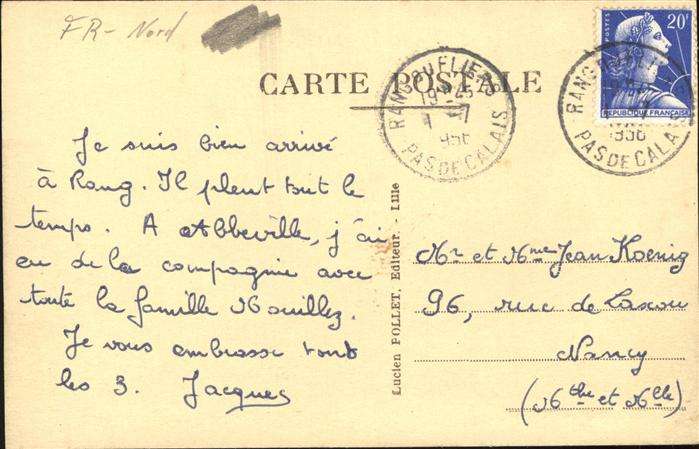 FR- Nord
CARTE POSTALE
POSTES
20F
REPUBLIQUE FRANÇAISE
RANG DU FLIERS
19H45
1 -7
1956
PAS DE CALAIS
RANG DU FLIERS
1956
PAS DE CALAIS
Je suis bien arrivé
à Rang. Il pleut tout le
temps. A Abbeville, j'ai
eu de la compagnie avec
toute la famille Mouillez.
Je vous embrasse tous
les 3. Jacques
Lucien POLLET, Editeur. - Lille
Mr et Mme Jean Koenig
96, rue de Laxou
Nancy
(Mthe et Melle)